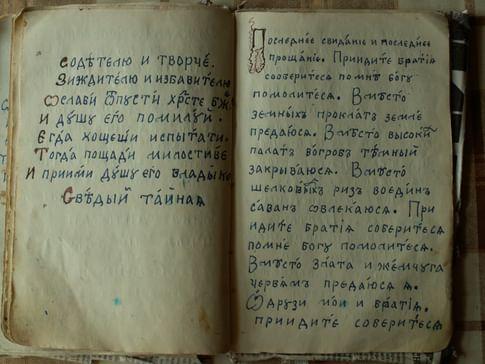 Содѣтелю и творче.
Зиждителю и избавителю
Ѡслаби Ѿпусти хрс҃те бж҃
и дꙋшꙋ его помилꙋй.
Егда хощеши испытати.
Тогда пощади милостиве
И приими дꙋшꙋ его владыко
Свѣдый тайная
Последнее свиданіе и последнее
прощаніе. Приидите братія
сооберитеся помнѣ богꙋ
помолитеся. Вмѣсто
земныхъ проклатъ земле
предаюся. Вмѣсто высокій
палатъ вогробъ тѣмный
закрываюся. Вмѣсто
шелковыхъ ризъ воединъ
саванъ ѡвлекаюся. При
идите братія соберитеся
помне богꙋ помолитеся.
Вмѣсто злата и жемчꙋга
червямъ предаюся я.
Ѽ дрꙋзи мои и братія.
приидите соберитеся